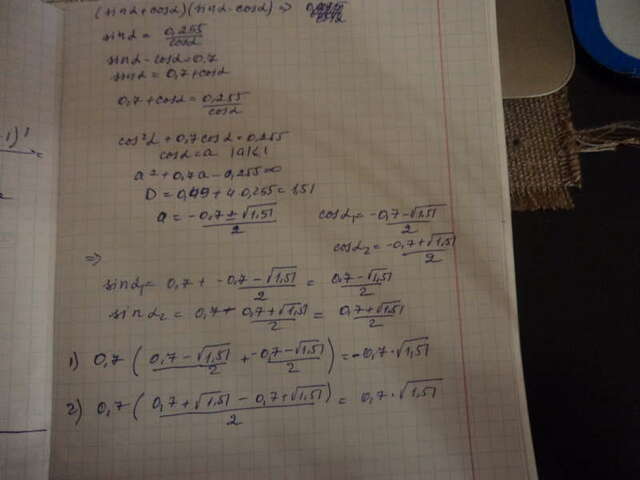 (sinα + cosα)(sinα - cosα) =>
sinα = 0,255/cosα
sinα - cosα = 0,7
sinα = 0,7 + cosα
0,7 + cosα = 0,255/cosα
cos²α + 0,7cosα = 0,255
cosα = a |a|≤1
a² + 0,7a - 0,255 = 0
D = 0,49 + 4·0,255 = 1,51
a = (-0,7 ± √1,51)/2 cosα₁ = (-0,7 - √1,51)/2
cosα₂ = (-0,7 + √1,51)/2
=>
sinα₁ = 0,7 + (-0,7 - √1,51)/2 = (0,7 - √1,51)/2
sinα₂ = 0,7 + (0,7 + √1,51)/2 = (0,7 + √1,51)/2
1) 0,7 ((0,7 - √1,51)/2 + (-0,7 - √1,51)/2) = -0,7·√1,51
2) 0,7 ((0,7 + √1,51 - 0,7 + √1,51)/2) = 0,7·√1,51